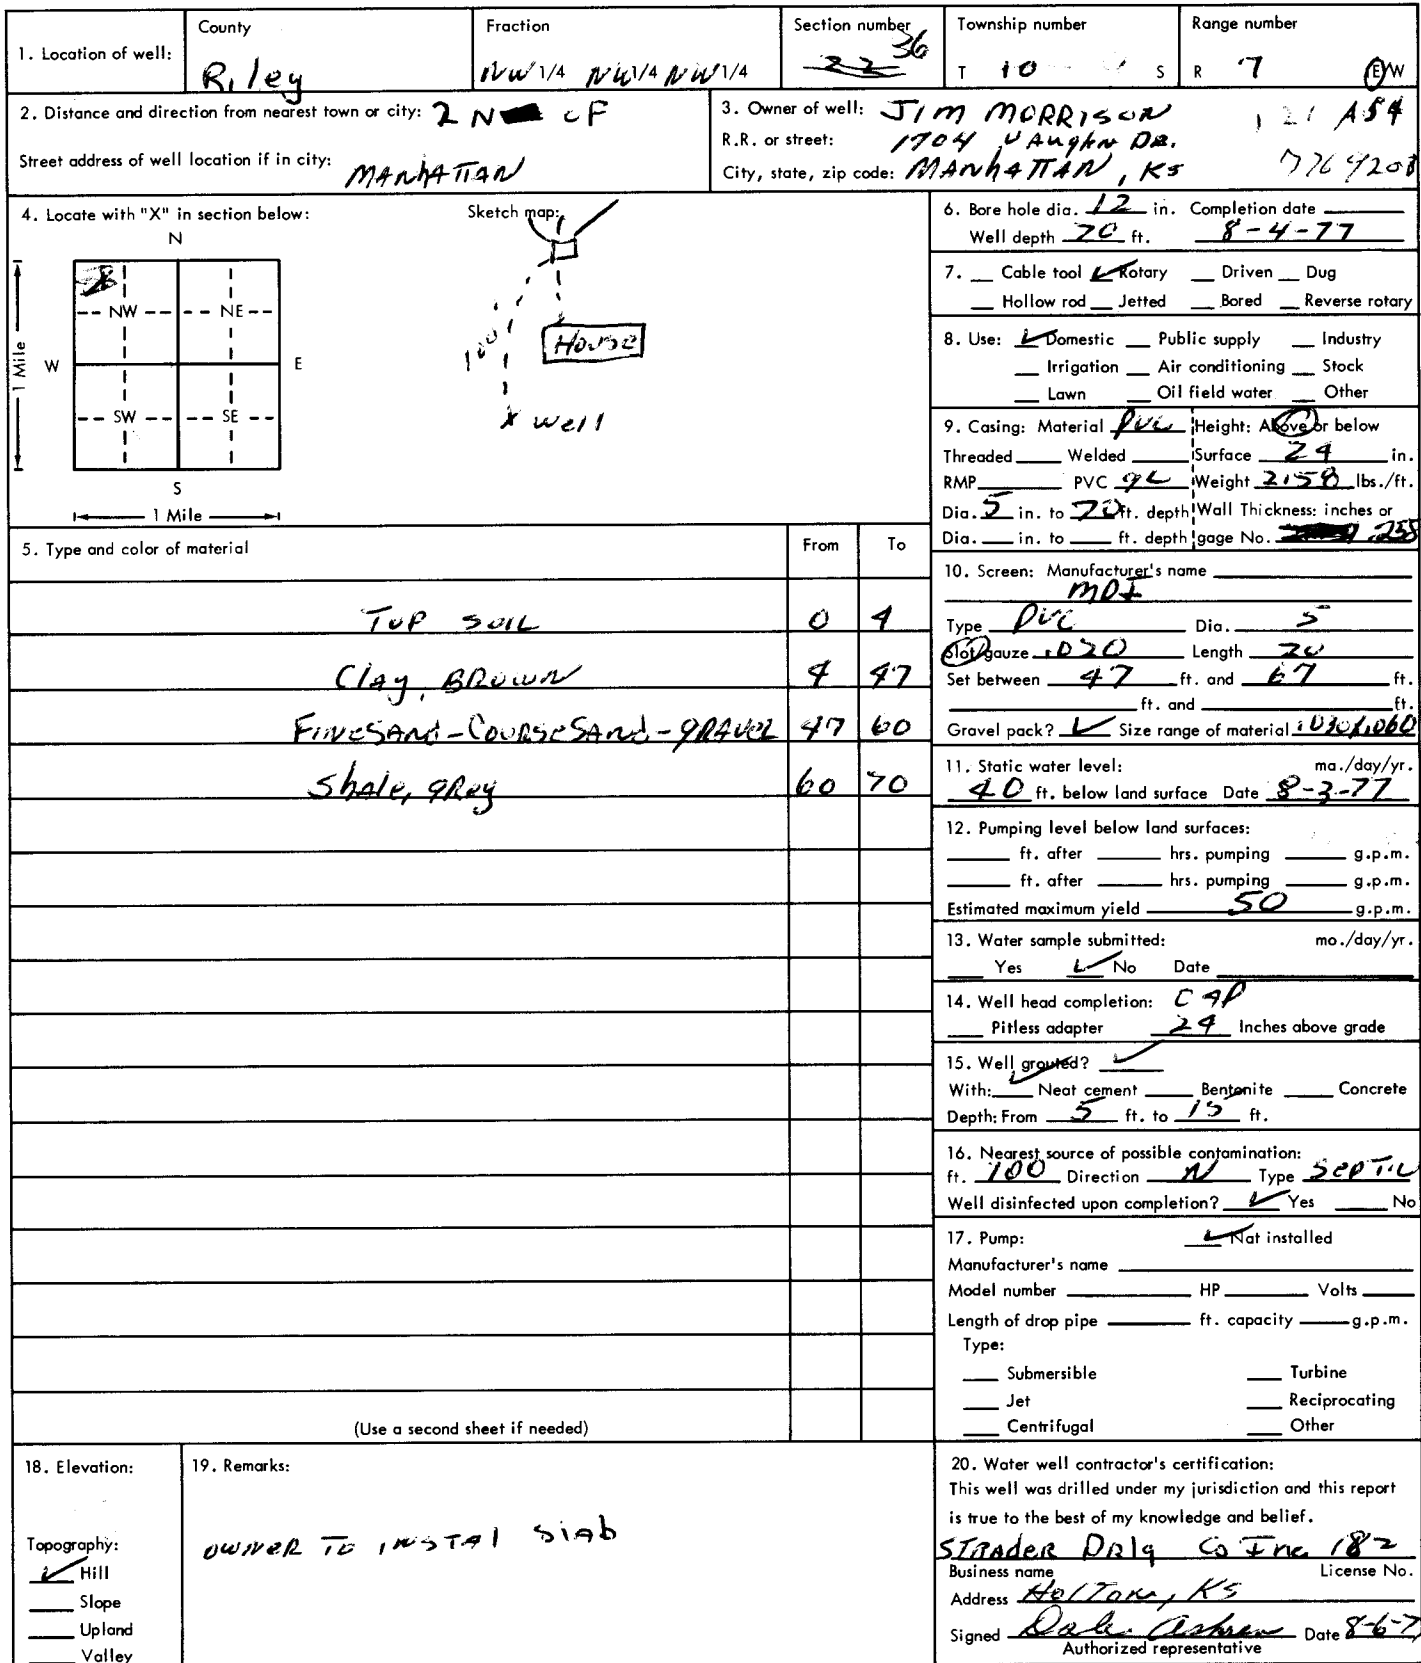 1. Location of well:
County
Riley
Fraction
NW 1/4 NW 1/4 NW 1/4
Section number
22 36
Township number
T 10 S
Range number
R 7 E/W
2. Distance and direction from nearest town or city: 2 N OF
Street address of well location if in city: MANHATTAN
3. Owner of well: JIM MORRISON
R.R. or street: 1704 VAughn DR.
City, state, zip code: MANHATTAN, KS
4. Locate with "X" in section below:
N
NW NE
W E
SW SE
S
1 Mile
1 Mile
Sketch map:
House
100'
X well
5. Type and color of material From To
TOP SOIL 0 4
Clay, BROWN 4 47
FINE SAND - COURSE SAND - gRAVEL 47 60
Shale, gRey 60 70
(Use a second sheet if needed)
6. Bore hole dia. 12 in. Completion date
Well depth 70 ft. 8-4-77
7. Cable tool Rotary Driven Dug
Hollow rod Jetted Bored Reverse rotary
8. Use: Domestic Public supply Industry
Irrigation Air conditioning Stock
Lawn Oil field water Other
9. Casing: Material PVC Height: Above or below
Threaded Welded Surface 24 in.
RMP PVC Weight 2.58 lbs./ft.
Dia. 5 in. to 70 ft. depth Wall Thickness: inches or
Dia. in. to ft. depth gage No. .258
10. Screen: Manufacturer's name
MDI
Type PVC Dia. 5
Slot/gauze .020 Length 20
Set between 47 ft. and 67 ft.
ft. and ft.
Gravel pack? Size range of material .030/.060
11. Static water level: ma./day/yr.
40 ft. below land surface Date 8-3-77
12. Pumping level below land surfaces:
ft. after hrs. pumping g.p.m.
ft. after hrs. pumping g.p.m.
Estimated maximum yield 50 g.p.m.
13. Water sample submitted: mo./day/yr.
Yes No Date
14. Well head completion: CAP
Pitless adapter 24 Inches above grade
15. Well grouted?
With: Neat cement Bentonite Concrete
Depth: From 5 ft. to 15 ft.
16. Nearest source of possible contamination:
ft. 100 Direction N Type SEPTIC
Well disinfected upon completion? Yes No
17. Pump: Nat installed
Manufacturer's name
Model number HP Volts
Length of drop pipe ft. capacity g.p.m.
Type:
Submersible Turbine
Jet Reciprocating
Centrifugal Other
18. Elevation:
Topography:
Hill
Slope
Upland
Valley
19. Remarks:
OWNER TO INSTAl SlAb
20. Water well contractor's certification:
This well was drilled under my jurisdiction and this report
is true to the best of my knowledge and belief.
STRADER DRlg Co Inc. 182
Business name License No.
Address Holton, KS
Signed Dale Date 8-6-7
Authorized representative